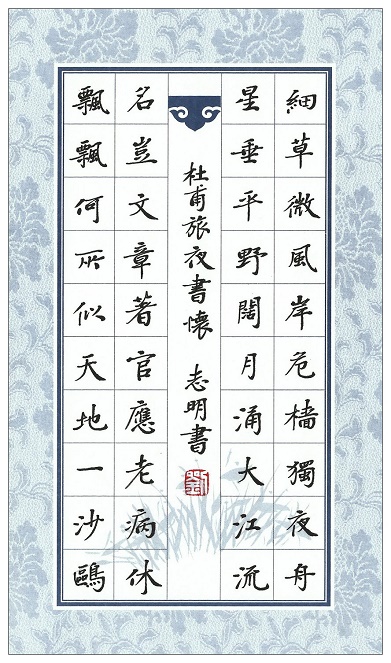 細草微風岸危檣獨夜舟
星垂平野闊月涌大江流
杜甫旅夜書懷 志明書
名豈文章著官應老病休
飄飄何所似天地一沙鷗